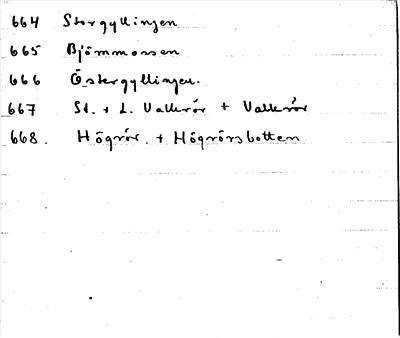 664 Storgyllingen
665 Björnmossen
666 Östergyllingen.
667 St. + L. Valkrör + Valkrör
668. Högrör. + Högrörsbotten